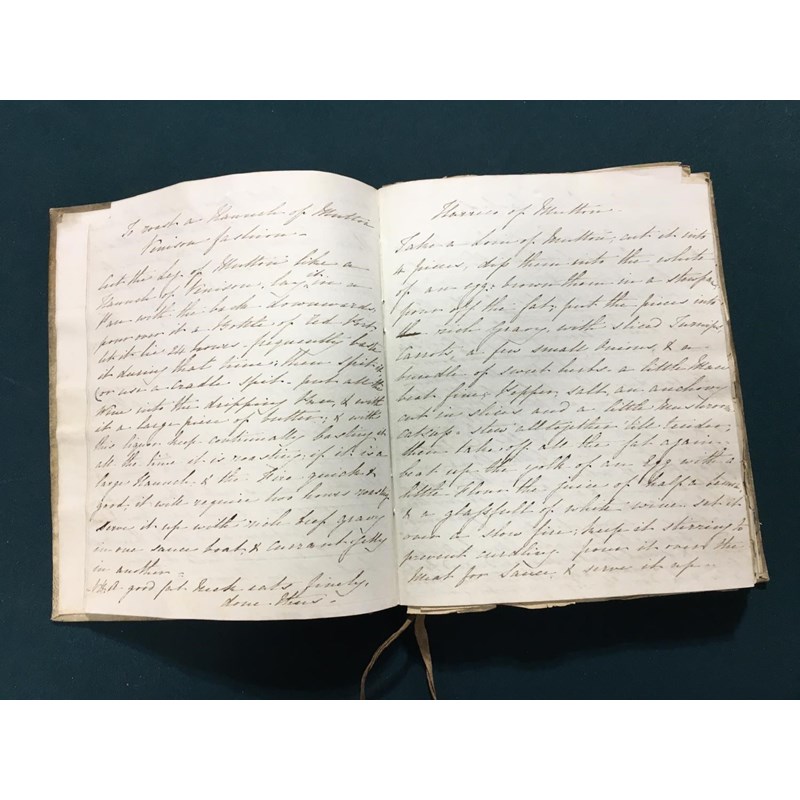 To roast a Haunch of Mutton
Venison fashion -
Cut the Leg of Mutton like a
Haunch of Venison, lay it in a
Pan with the back downwards,
pour over it a Bottle of red Port
let it lie 24 hours. frequently baste
it during that time; then spit it
(or use a cradle spit. put all the
Wine into the dripping Pan, & with
it a large piece of butter; & with
this liquor keep continually basting it
all the time it is roasting; if it is a
large Haunch, & the Fire quick &
good; it will require two hours roasting
serve it up with rich beef gravy
in one sauce boat, & currant Jelly
in another -
A good fat Neck eats finely,
done thus -
Harrico of Mutton -
Take a Loin of Mutton, cut it into
pieces, dip them into the white
of an egg; brown them in a stewpan
pour off the fat; put the pieces into
rich Gravy with sliced Turnips
Carrots, a few small Onions, & a
bundle of sweet herbs. a little Mace
beat fine; Pepper, salt, an anchovy
cut in slices and a little Mushroom
Catsup. stew all together till tender;
then take off all the fat again -
beat up the yolk of an Egg with a
little Flour the juice of half a Lemon
& a glassfull of white wine. set it
over a slow fire; keep it stirring to
prevent curdling pour it over the
Meat for Sauce, & serve it up -